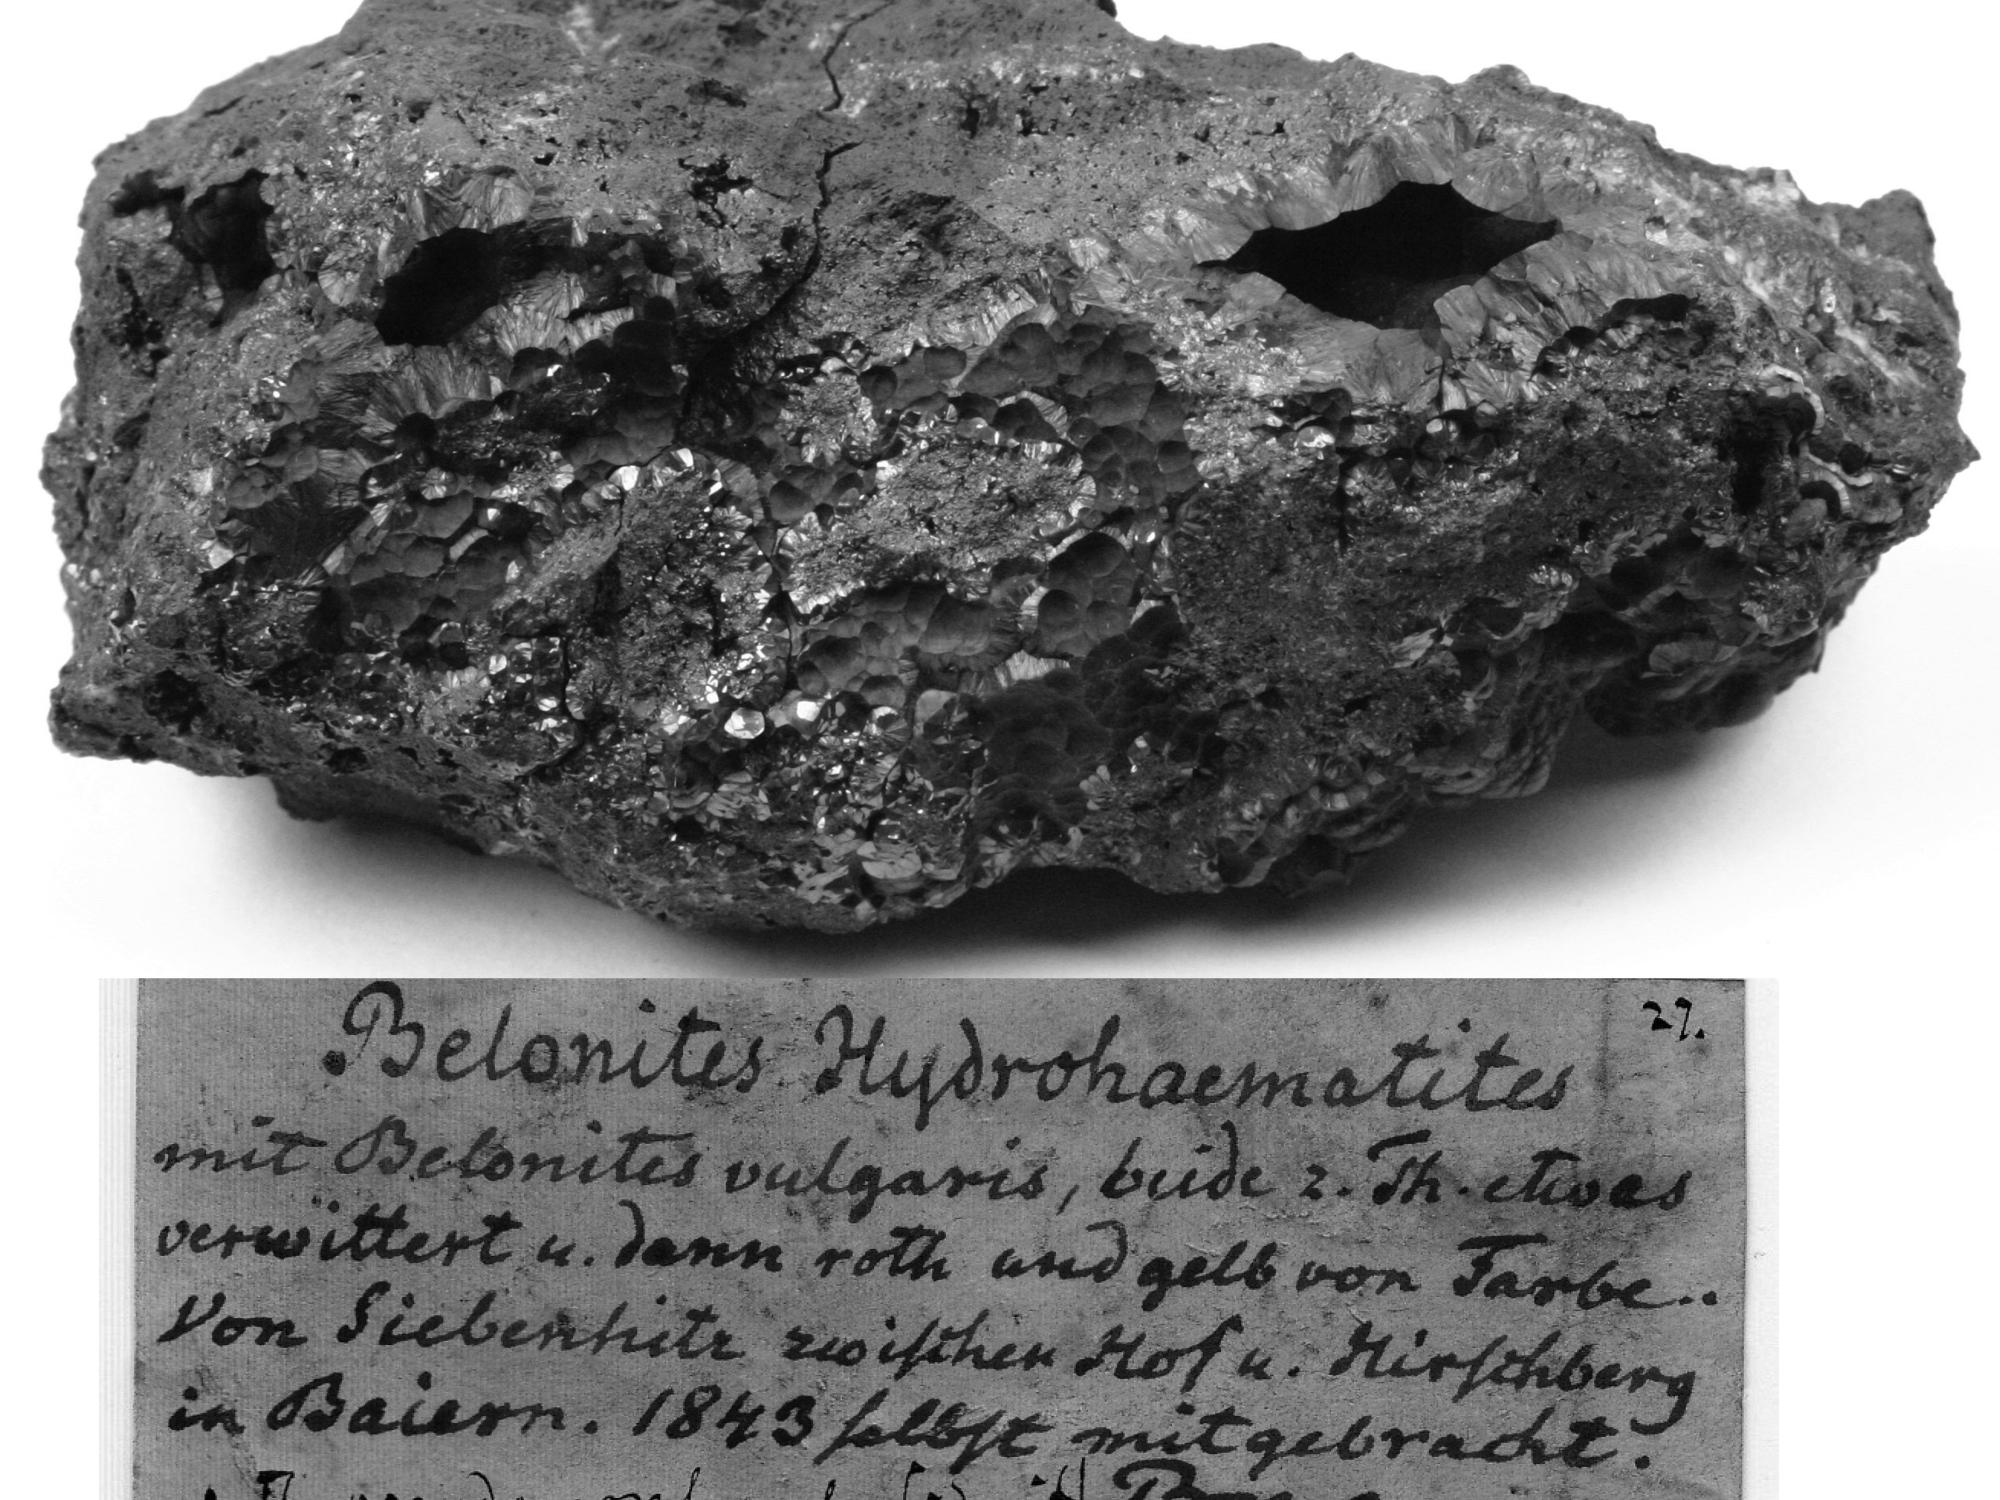 27.
Belonites Hydrohaematites
mit Belonites vulgaris, beide z. Th. etwas
verwittert u. dann roth und gelb von Farbe..
Von Siebenhitz zwischen Hof u. Hirschberg
in Baiern. 1843 selbst mitgebracht.